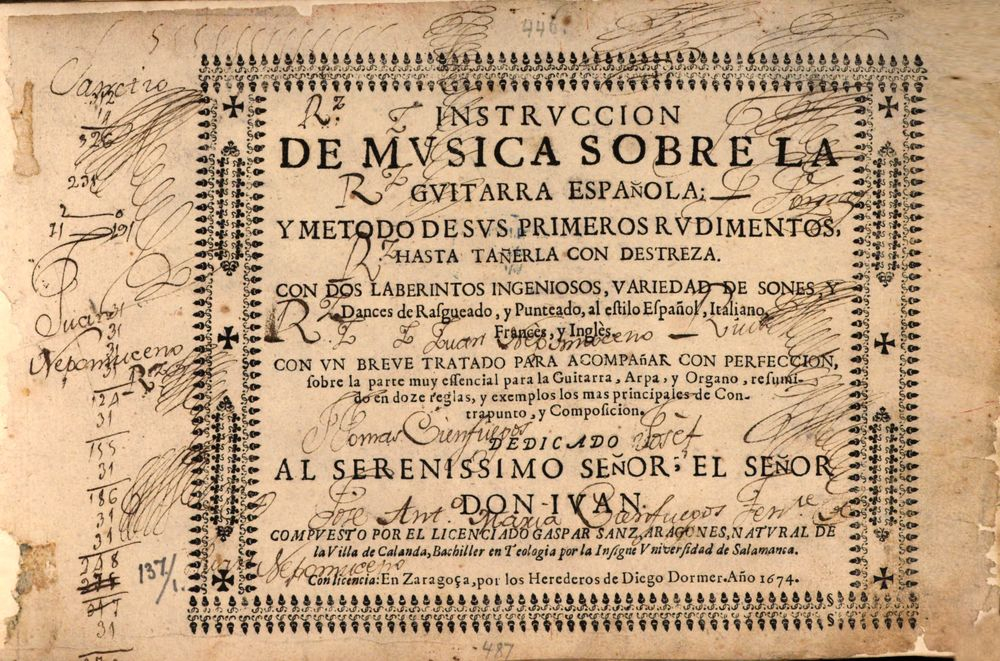 446.
INSTRVCCION
DE MVSICA SOBRE LA
GVITARRA ESPAÑOLA;
Y METODO DE SVS PRIMEROS RVDIMENTOS,
HASTA TAÑERLA CON DESTREZA.
CON DOS LABERINTOS INGENIOSOS, VARIEDAD DE SONES, Y
Dances de Rasgueado, y Punteado, al estilo Español, Italiano,
Francès, y Inglès.
Juan Nepomuceno
CON VN BREVE TRATADO PARA ACOMPAÑAR CON PERFECCION,
sobre la parte muy essencial para la Guitarra, Arpa, y Organo, resumi-
do en doze reglas, y exemplos los mas principales de Con-
trapunto, y Composicion.
Thomas Cienfuegos
DEDICADO
Josef
AL SERENISSIMO SEÑOR, EL SEÑOR
DON IVAN.
Jose Antº Maria Cienfuegos
COMPVESTO POR EL LICENCIADO GASPAR SANZ, ARAGONES, NATVRAL DE
la Villa de Calanda, Bachiller en Teologia por la Insigne Vniversidad de Salamanca.
Nepomuceno
Con licencia: En Zaragoça, por los Herederos de Diego Dormer. Año 1674.
487
Juan
31
31
Nepomuceno
31
124
31
155
31
186
31
31
248
137/1.
247
31